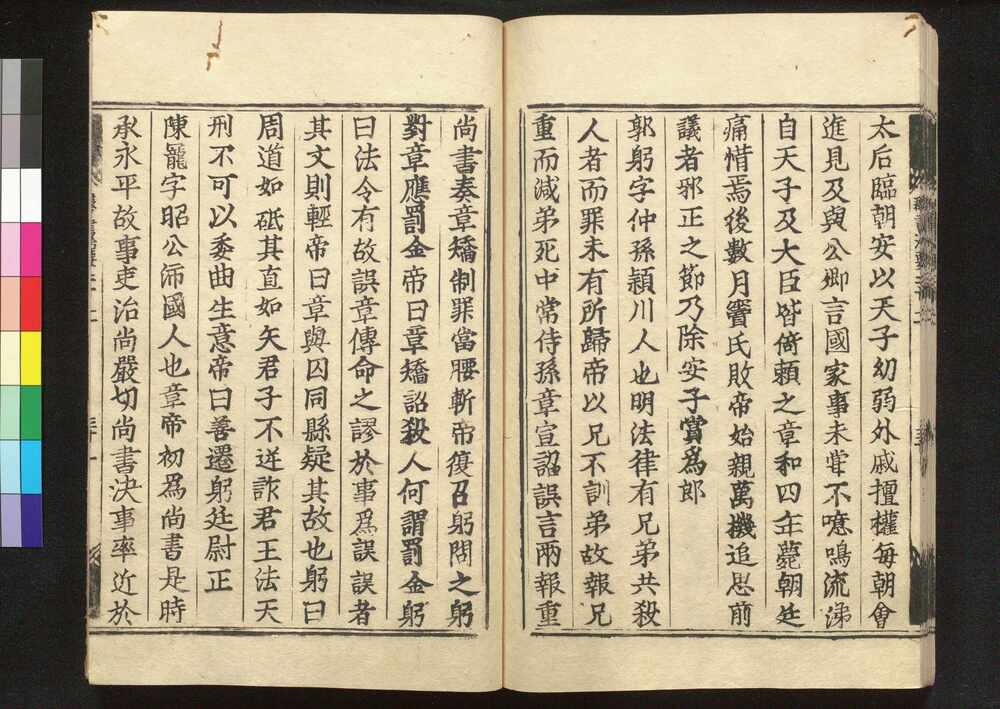 太后臨朝安以天子幼弱外戚擅權每朝會
進見及與公卿言國家事未嘗不噫鳴流涕
自天子及大臣皆倚賴之章和四年薨朝廷
痛惜焉後數月竇氏敗帝始親萬機追思前
議者邪正之節乃除安子賞爲郎
郭躬字仲孫潁川人也明法律有兄弟共殺
人者而罪未有所歸帝以兄不訓弟故報兄
重而減弟死中常侍孫章宣詔誤言兩報重
尚書奏章矯制罪當腰斬帝復召躬問之躬
對章應罰金帝曰章矯詔殺人何謂罰金躬
曰法令有故誤章傳命之謬於事爲誤誤者
其文則輕帝曰章與囚同縣疑其故也躬曰
周道如砥其直如矢君子不逆詐君王法天
刑不可以委曲生意帝曰善遷躬廷尉正
陳寵字昭公沛國人也章帝初爲尚書是時
承永平故事吏治尚嚴切尚書決事率近於